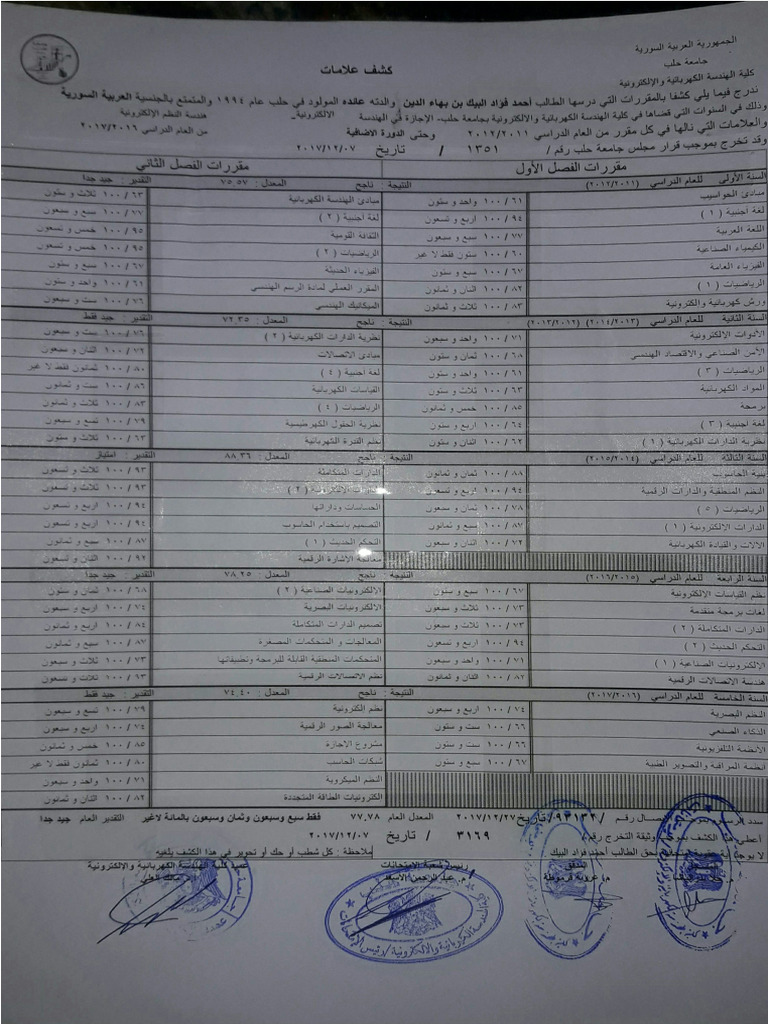 الجمهورية العربية السورية
جامعة حلب
كلية الهندسة الكهربائية والإلكترونية
كشف علامات
ندرج فيما يلي كشفا بالمقررات التي درسها الطالب أحمد فؤاد البيك بن بهاء الدين والدته عائده المولود في حلب عام ١٩٩٤ والمتمتع بالجنسية العربية السورية
وذلك في السنوات التي قضاها في كلية الهندسة الكهربائية والالكترونية بجامعة حلب- الإجازة في الهندسة الالكترونية- هندسة النظم الالكترونية
والعلامات التي نالها في كل مقرر من العام الدراسي ٢٠١٢/٢٠١١ وحتى الدورة الاضافية من العام الدراسي ٢٠١٧/٢٠١٦
وقد تخرج بموجب قرار مجلس جامعة حلب رقم / ١٣٥١ / تاريخ ٢٠١٧/١٢/٠٧
مقررات الفصل الأول مقررات الفصل الثاني
السنة الأولى للعام الدراسي (٢٠١٢/٢٠١١) النتيجة : ناجح المعدل : ٧٥.٥٧ التقدير : جيد جدا
مبادئ الحواسيب ٦١ / ١٠٠ واحد و ستون مبادئ الهندسة الكهربائية ٦٣ / ١٠٠ ثلاث و ستون
لغة أجنبية ( ١ ) ٩٤ / ١٠٠ اربع و تسعون لغة اجنبية ( ٢ ) ٧٧ / ١٠٠ سبع و سبعون
اللغة العربية ٧٧ / ١٠٠ سبع و سبعون الثقافة القومية ٩٥ / ١٠٠ خمس و تسعون
الكيمياء الصناعية ٦٠ / ١٠٠ ستون فقط لا غير الرياضيات ( ٢ ) ٩٥ / ١٠٠ خمس و تسعون
الفيزياء العامة ٦٧ / ١٠٠ سبع و ستون الفيزياء الحديثة ٦٧ / ١٠٠ سبع و ستون
الرياضيات ( ١ ) ٨٢ / ١٠٠ اثنان و ثمانون المقرر العملي لمادة الرسم الهندسي ٦١ / ١٠٠ واحد و ستون
ورش كهربائية والكترونية ٨٣ / ١٠٠ ثلاث و ثمانون الميكانيك الهندسي ٧٦ / ١٠٠ ست و سبعون
السنة الثانية للعام الدراسي (٢٠١٤/٢٠١٣) (٢٠١٣/٢٠١٢) النتيجة : ناجح المعدل : ٧٢.٣٥ التقدير : جيد فقط
الأدوات الالكترونية ٧١ / ١٠٠ واحد و سبعون نظرية الدارات الكهربائية ( ٢ ) ٧٦ / ١٠٠ ست و سبعون
الأمن الصناعي والاقتصاد الهندسي ٦٨ / ١٠٠ ثمان و ستون مبادئ الاتصالات ٧٢ / ١٠٠ اثنان و سبعون
الرياضيات ( ٣ ) ٦١ / ١٠٠ واحد و ستون لغة اجنبية ( ٤ ) ٨٠ / ١٠٠ ثمانون فقط لا غير
المواد الكهربائية ٦٣ / ١٠٠ ثلاث و ستون القياسات الكهربائية ٨٦ / ١٠٠ ست و ثمانون
برمجة ٨٥ / ١٠٠ خمس و ثمانون الرياضيات ( ٤ ) ٨٣ / ١٠٠ ثلاث و ثمانون
لغة اجنبية ( ٣ ) ٦٤ / ١٠٠ اربع و ستون نظرية الحقول الكهرطيسية ٧٩ / ١٠٠ تسع و سبعون
نظرية الدارات الكهربائية ( ١ ) ٦٢ / ١٠٠ اثنان و ستون نظم القدرة الكهربائية ٦٣ / ١٠٠ ثلاث و ستون
السنة الثالثة للعام الدراسي (٢٠١٥/٢٠١٤) النتيجة : ناجح المعدل : ٨٨.٣٦ التقدير : امتياز
بنية الحاسوب ٨٨ / ١٠٠ ثمان و ثمانون الدارات المتكاملة ٩٣ / ١٠٠ ثلاث و تسعون
النظم المنطقية والدارات الرقمية ٩٤ / ١٠٠ اربع و تسعون الدارات الالكترونية ( ٢ ) ٩٣ / ١٠٠ ثلاث و تسعون
الرياضيات ( ٥ ) ٧٨ / ١٠٠ ثمان و سبعون الحساسات وداراتها ٩٤ / ١٠٠ اربع و تسعون
الدارات الالكترونية ( ١ ) ٨٧ / ١٠٠ سبع و ثمانون التصميم باستخدام الحاسوب ٩٤ / ١٠٠ اربع و تسعون
الالات والقيادة الكهربائية ٧٢ / ١٠٠ اثنان و سبعون التحكم الحديث ( ١ ) ٨٧ / ١٠٠ سبع و ثمانون
معالجة الاشارة الرقمية ٩٢ / ١٠٠ اثنان و تسعون
السنة الرابعة للعام الدراسي (٢٠١٦/٢٠١٥) النتيجة : ناجح المعدل : ٧٨.٢٥ التقدير : جيد جدا
نظم القياسات الالكترونية ٦٧ / ١٠٠ سبع و ستون الالكترونيات الصناعية ( ٢ ) ٦٨ / ١٠٠ ثمان و ستون
لغات برمجة متقدمة ٧٣ / ١٠٠ ثلاث و سبعون الالكترونيات البصرية ٧٤ / ١٠٠ اربع و سبعون
الدارات المتكاملة ( ٢ ) ٧٣ / ١٠٠ ثلاث و سبعون تصميم الدارات المتكاملة ٨٤ / ١٠٠ اربع و ثمانون
التحكم الحديث ( ٢ ) ٩٤ / ١٠٠ اربع و تسعون المعالجات و المتحكمات المصغرة ٨٧ / ١٠٠ سبع و ثمانون
الالكترونيات الصناعية ( ١ ) ٧١ / ١٠٠ واحد و سبعون المتحكمات المنطقية القابلة للبرمجة وتطبيقاتها ٧٣ / ١٠٠ ثلاث و سبعون
هندسة الاتصالات الرقمية ٨٢ / ١٠٠ اثنان و ثمانون نظم الاتصالات الرقمية ٩٣ / ١٠٠ ثلاث و تسعون
السنة الخامسة للعام الدراسي (٢٠١٧/٢٠١٦) النتيجة : ناجح المعدل : ٧٤.٤٠ التقدير : جيد فقط
النظم البصرية ٧٤ / ١٠٠ اربع و سبعون نظم الكترونية ٧٩ / ١٠٠ تسع و سبعون
الذكاء الصنعي ٦٦ / ١٠٠ ست و ستون معالجة الصور الرقمية ٧٤ / ١٠٠ اربع و سبعون
الانظمة التلفزيونية ٦٦ / ١٠٠ ست و ستون مشروع الاجازة ٨٥ / ١٠٠ خمس و ثمانون
انظمة المراقبة والتصوير الطبية ٦٧ / ١٠٠ سبع و ستون شبكات الحاسب ٨٠ / ١٠٠ ثمانون فقط لا غير
النظم الميكروية ٧١ / ١٠٠ واحد و سبعون
الكترونيات الطاقة المتجددة ٨٢ / ١٠٠ اثنان و ثمانون
سدد الرسوم رقم / ٩٣١٣٢ / تاريخ ٢٠١٧/١٢/٢٧ المعدل العام ٧٧.٧٨ فقط سبع وسبعون وثمان وسبعون بالمائة لاغير التقدير العام جيد جدا
أعطي هذا الكشف وثيقة التخرج رقم / ٣١٦٩ / تاريخ ٢٠١٧/١٢/٠٧
لا يوجد بحق الطالب أحمد فؤاد البيك ملاحظة : كل شطب أو حك أو تحرير في هذا الكشف يلغيه
المدقق رئيس شعبة الامتحانات عميد كلية الهندسة الكهربائية والالكترونية
م. عبد الرحمن